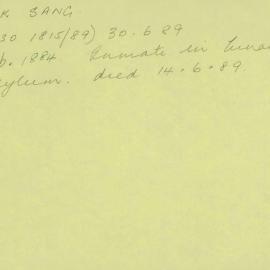 K SANG
30 1815/89) 30.6.89
b. 1884 Inmate in Luna
sylum. died 14.6.89